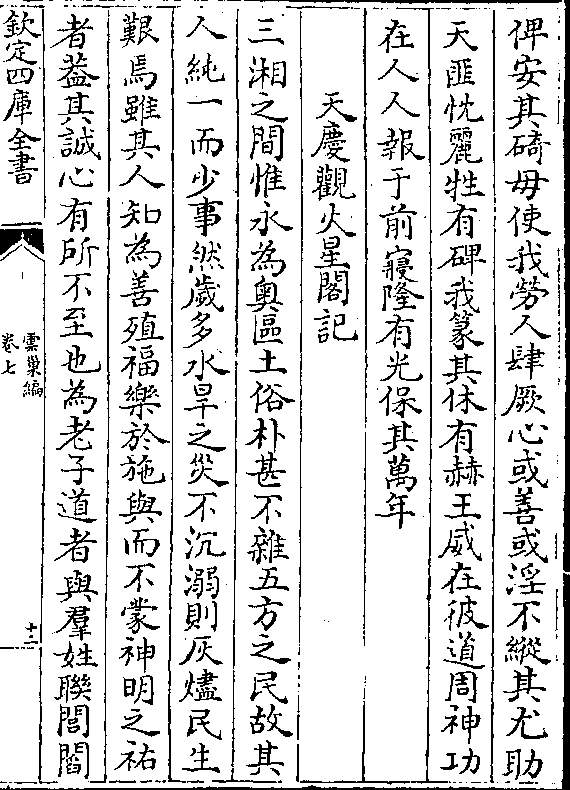 俾安其碕毋使我勞人肆厥心或善或淫不縱其尤助
天匪忱麗牲有碑我篆其休有赫王威在彼道周神功
在人人報于前寢隆有光保其萬年
天慶觀火星閣記
三湘之間惟永為奥區土俗朴甚不雜五方之民故其
人純一而少事然歲多水旱之災不沉溺則灰燼民生
艱焉雖其人知為善殖福樂於施與而不蒙神明之祐
者葢其誠心有所不至也為老子道者與羣姓聯閭閻
欽定四庫全書
雲巢編
卷七
十二